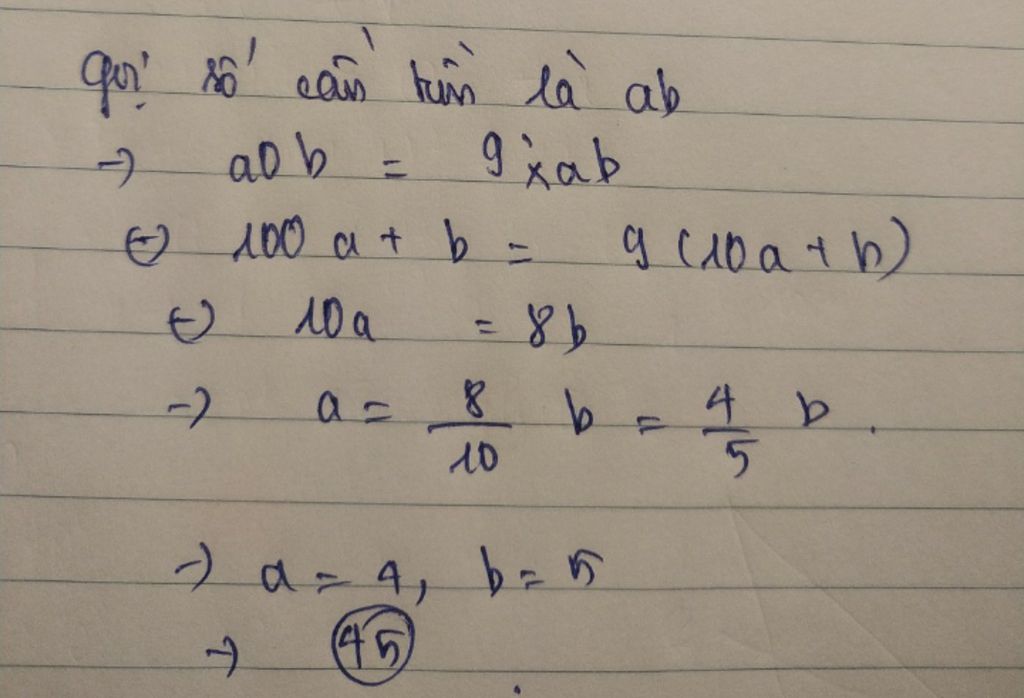 Gọi số cần tìm là ab
→ a0b = 9 x ab
↔ 100a + b = 9 (10a + b)
↔ 10a = 8b
→ a = 8/10 b = 4/5 b.
→ a = 4, b = 5
→ 45